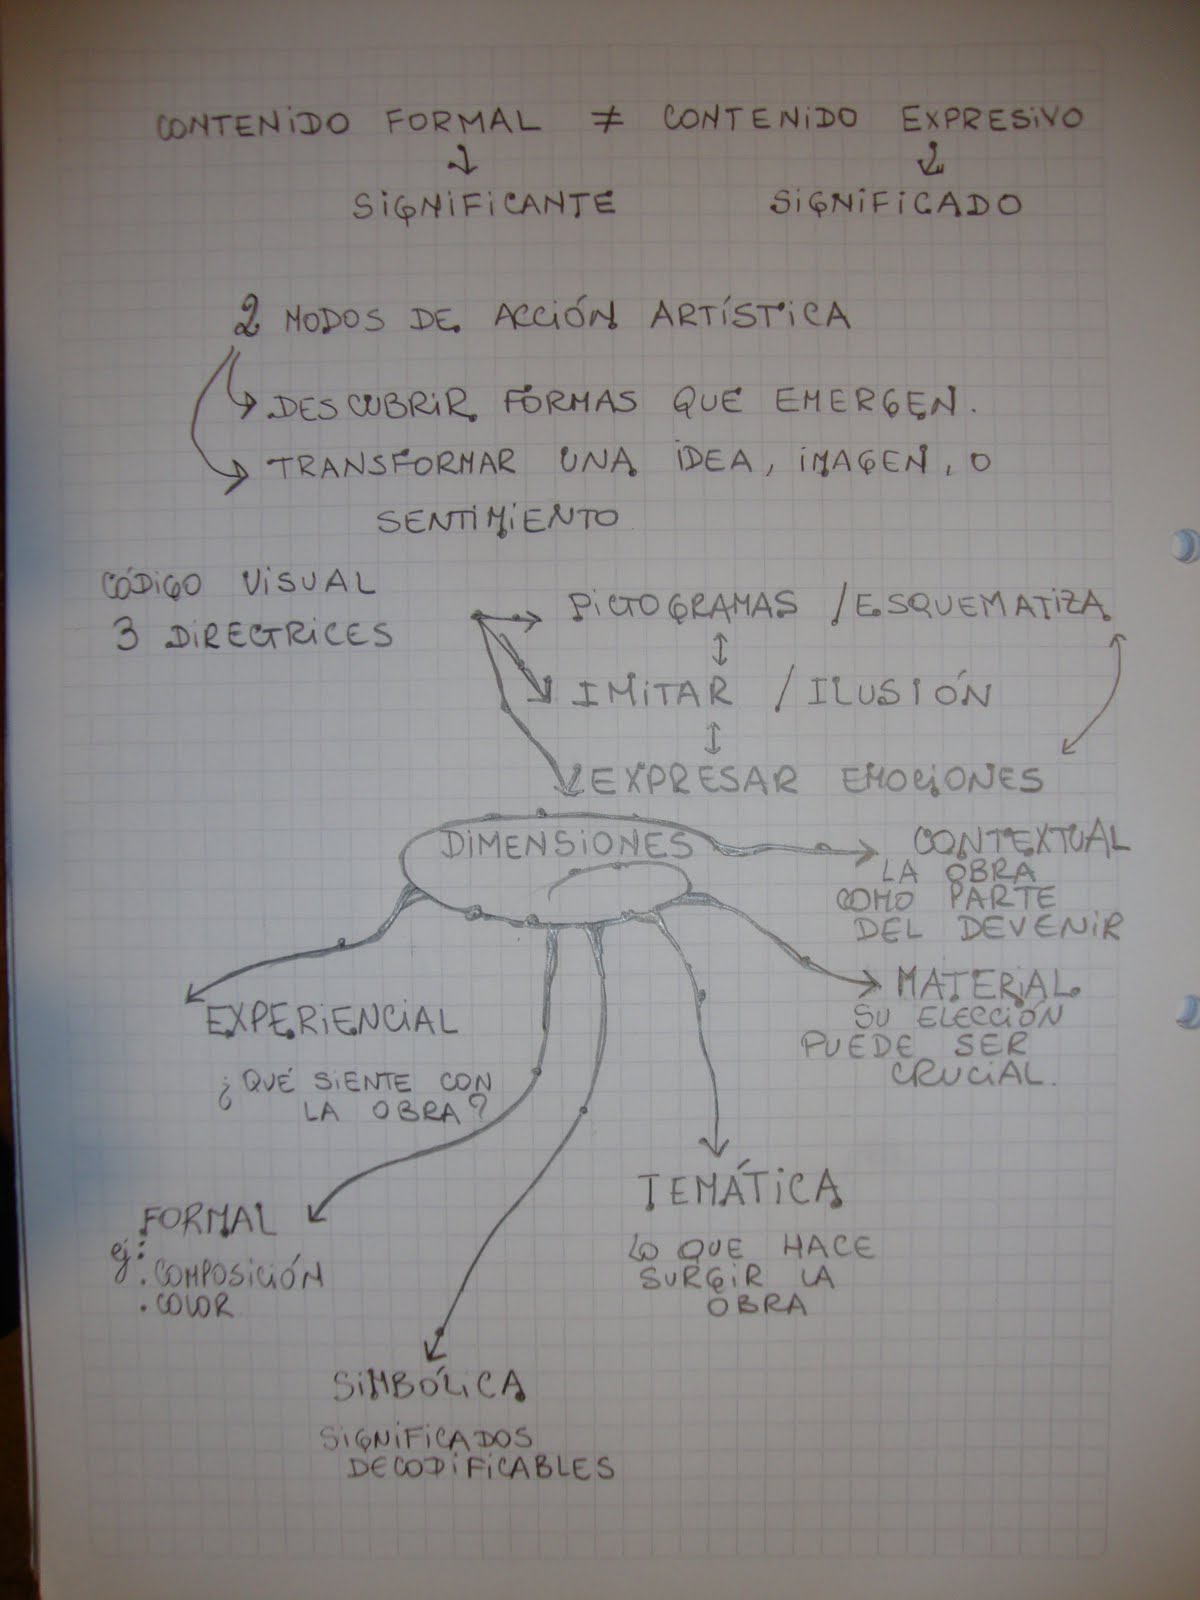 CONTENIDO FORMAL ≠ CONTENIDO EXPRESIVO
SIGNIFICANTE SIGNIFICADO
2 MODOS DE ACCIÓN ARTÍSTICA
DESCUBRIR FORMAS QUE EMERGEN.
TRANSFORMAR UNA IDEA, IMAGEN, O
SENTIMIENTO
CÓDIGO VISUAL
3 DIRECTRICES
PICTOGRAMAS / ESQUEMATIZA
IMITAR / ILUSIÓN
EXPRESAR EMOCIONES
DIMENSIONES
CONTEXTUAL
LA OBRA
COMO PARTE
DEL DEVENIR
MATERIAL
SU ELECCIÓN
PUEDE SER
CRUCIAL.
EXPERIENCIAL
¿QUÉ SIENTE CON
LA OBRA?
TEMÁTICA
LO QUE HACE
SURGIR LA
OBRA
FORMAL
ej:
. COMPOSICIÓN
. COLOR
SIMBÓLICA
SIGNIFICADOS
DECODIFICABLES